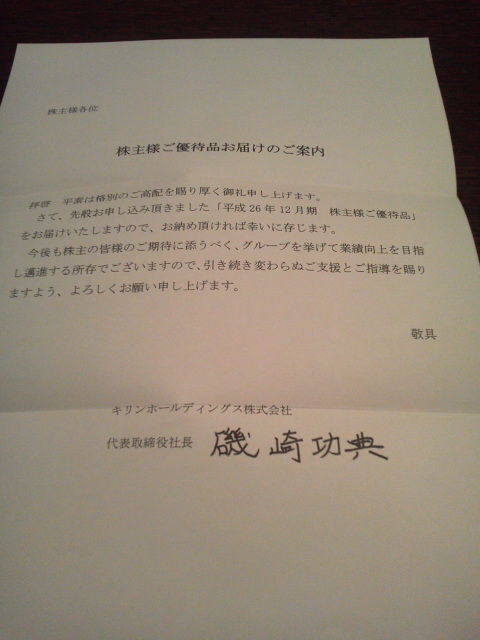 株主様各位
株主様ご優待品お届けのご案内
拝啓　平素は格別のご高配を賜り厚く御礼申し上げます。
さて、先般お申し込み頂きました「平成26年12月期　株主様ご優待品」
をお届けいたしますので、お納め頂ければ幸いに存じます。
今後も株主の皆様のご期待に添うべく、グループを挙げて業績向上を目指
し邁進する所存でございますので、引き続き変わらぬご支援とご指導を賜り
ますよう、よろしくお願い申し上げます。
敬具
キリンホールディングス株式会社
代表取締役社長　磯崎功典